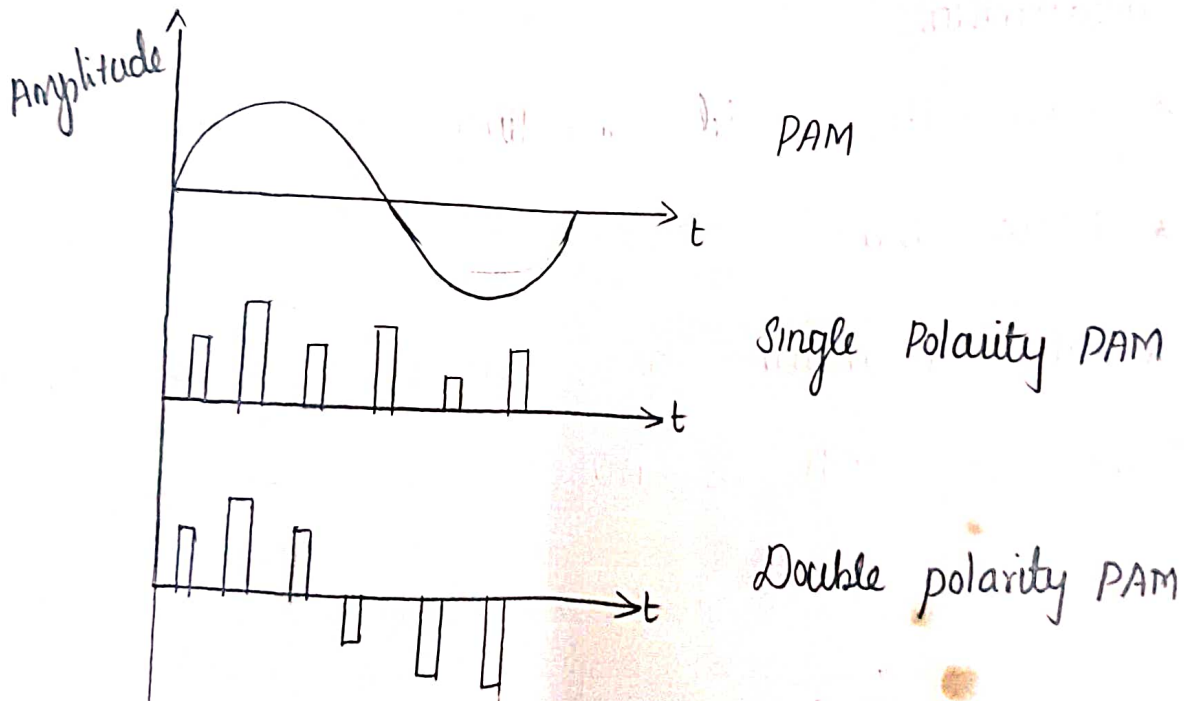 Amplitude
PAM
t
Single Polarity PAM
t
Double polarity PAM
t